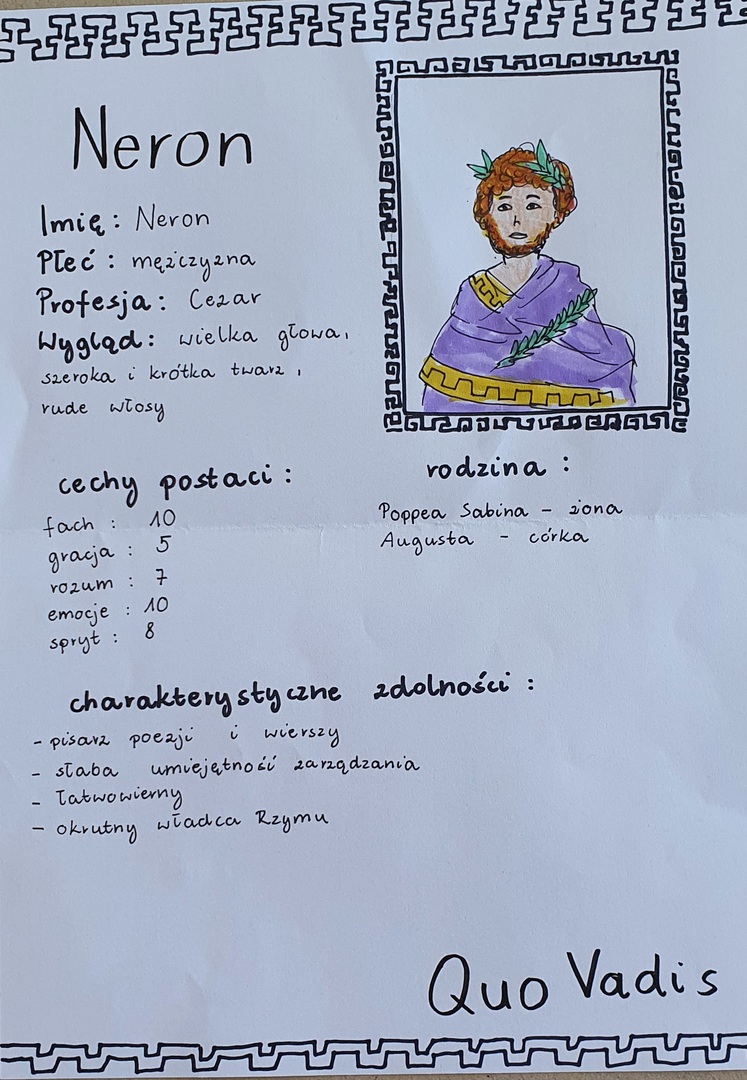 Neron
Imię: Neron
Płeć: mężczyzna
Profesja: Cezar
Wygląd: wielka głowa,
szeroka i krótka twarz,
rude włosy
cechy postaci:
fach: 10
gracja: 5
rozum: 7
emocje: 10
spryt: 8
rodzina:
Poppea Sabina - żona
Augusta - córka
charakterystyczne zdolności:
- pisarz poezji i wierszy
- słaba umiejętność zarządzania
- łatwowierny
- okrutny władca Rzymu
Quo Vadis